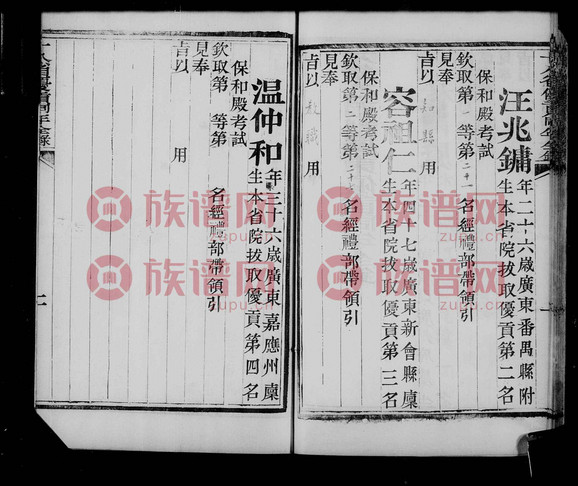 汪兆鏞年二十六歲廣東番禺縣附
生本省院拔取優貢第二名
保和殿考試
欽取第一等第二十一名經禮部帶領引
見奉
旨以知縣用
容祖仁年四十七歲廣東新會縣廩
生本省院拔取優貢第三名
保和殿考試
欽取第二等第二十名經禮部帶領引
見奉
旨以教職用
温仲和年三十六歲廣東嘉應州廩
生本省院拔取優貢第四名
保和殿考試
欽取第 等第 名經禮部帶領引
見奉
旨以 用
族谱网
zupu.cn